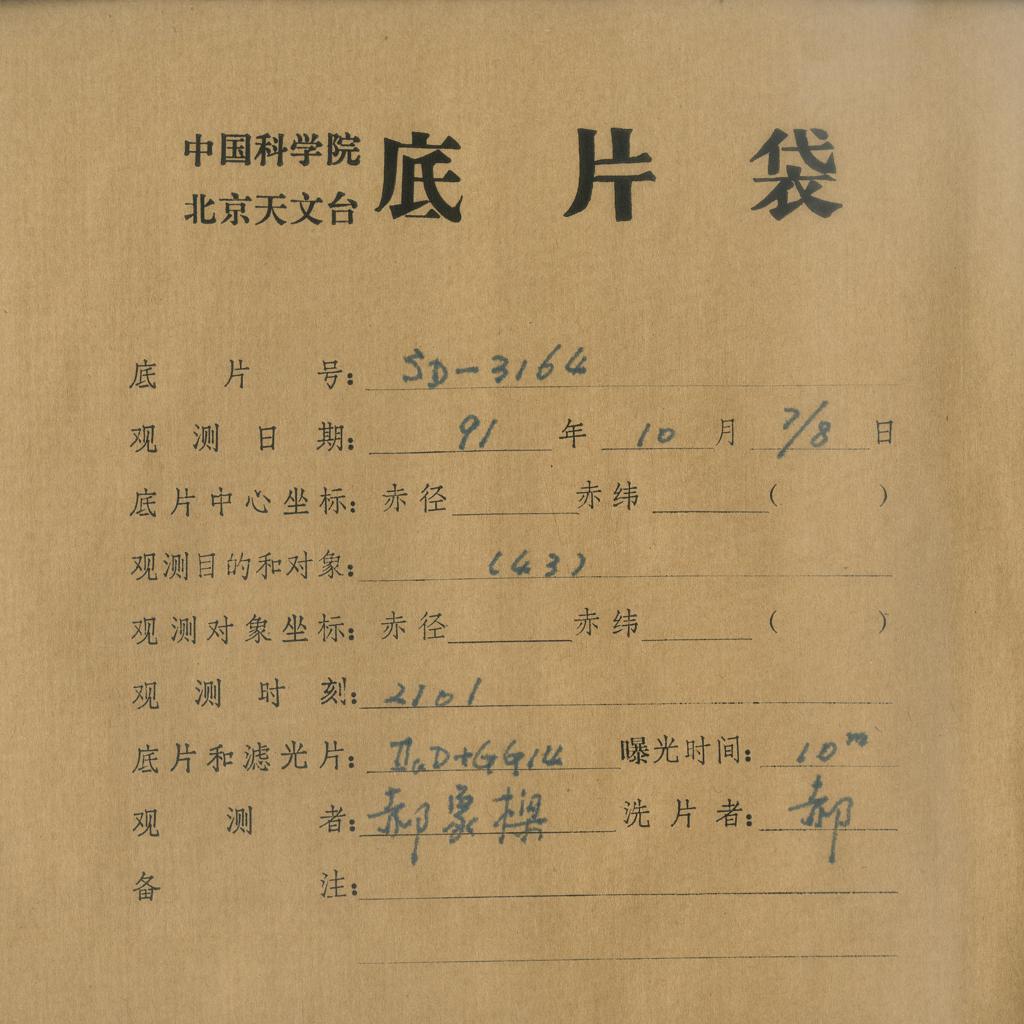 中国科学院
北京天文台
底片袋
底片号：SD-3164
观测日期：91年10月7/8日
底片中心坐标：赤径 赤纬 （ ）
观测目的和对象：(43)
观测对象坐标：赤径 赤纬 （ ）
观测时刻：2101
底片和滤光片：IIaD+GG14 曝光时间：10m
观测者：郝象樑 洗片者：郝
备注：